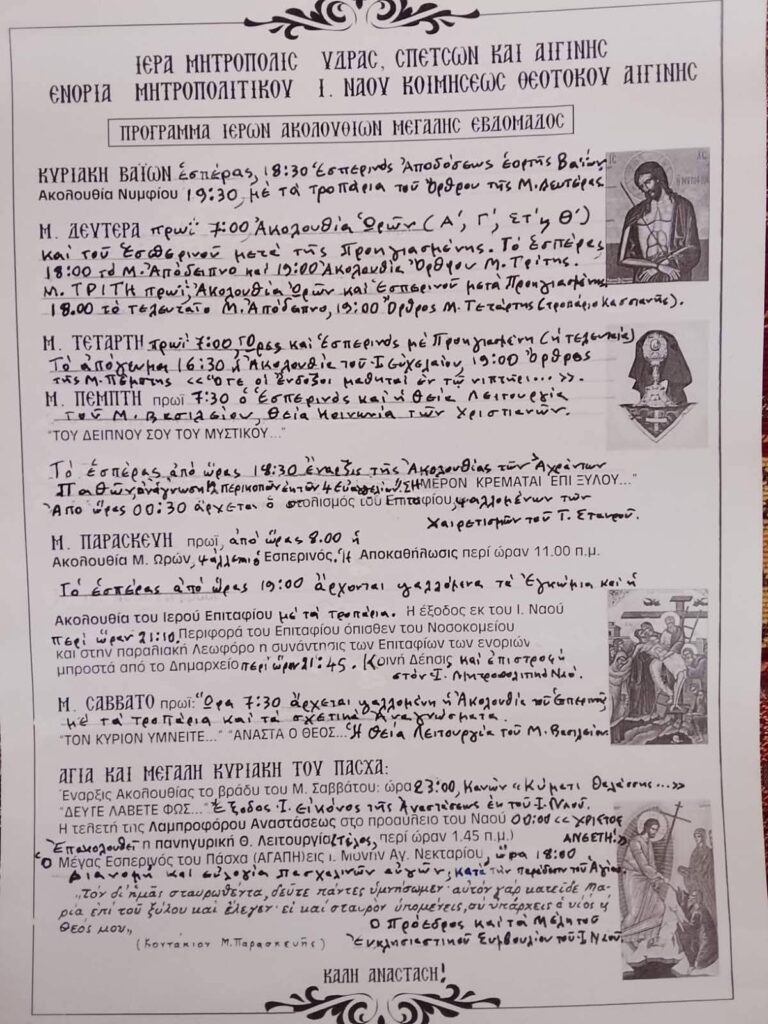 ΙΕΡΑ ΜΗΤΡΟΠΟΛΙΣ ΥΔΡΑΣ, ΣΠΕΤΣΩΝ ΚΑΙ ΑΙΓΙΝΗΣ
ΕΝΟΡΙΑ ΜΗΤΡΟΠΟΛΙΤΙΚΟΥ Ι. ΝΑΟΥ ΚΟΙΜΗΣΕΩΣ ΘΕΟΤΟΚΟΥ ΑΙΓΙΝΗΣ
ΠΡΟΓΡΑΜΜΑ ΙΕΡΩΝ ΑΚΟΛΟΥΘΙΩΝ ΜΕΓΑΛΗΣ ΕΒΔΟΜΑΔΟΣ
ΚΥΡΙΑΚΗ ΒΑΪΩΝ ἑσπέρας, 18:30 Ἑσπερινὸς Ἀποδόσεως ἑορτῆς Βαΐων
Ακολουθία Νυμφίου 19:30, μὲ τὰ τροπάρια τοῦ Ὄρθρου τῆς Μ. Δευτέρας
Μ. ΔΕΥΤΕΡΑ πρωΐ 7:00, Ἀκολουθία Ὡρῶν (Α', Γ', ΣΤ' ἡ Θ')
καὶ τοῦ Ἑσπερινοῦ μετὰ τῆς Προηγιασμένης. Τὸ ἑσπέρας
18:00 τὸ Μ. Ἀπόδειπνο καὶ 19:00 Ἀκολουθία Ὄρθρου Μ. Τρίτης.
Μ. ΤΡΙΤΗ πρωΐ, Ἀκολουθία Ὡρῶν καὶ Ἑσπερινοῦ μετὰ Προηγιασμένης
18.00 τὸ τελευταῖο Μ. Ἀπόδειπνο, 19:00 Ὄρθρος Μ. Τετάρτης (τροπάριο Κασσιανῆς).
Μ. ΤΕΤΑΡΤΗ πρωΐ 7:00, Ὧρες καὶ Ἑσπερινὸς μὲ Προηγιασμένη (ἡ τελευταία)
Τὸ ἀπόγευμα 16:30 ἡ Ἀκολουθία τοῦ Ἱ. Εὐχελαίου, 19:00 Ὄρθρος
τῆς Μ. Πέμπτης «Ὅτε οἱ ἔνδοξοι μαθηταὶ ἐν τῷ νιπτῆρι...».
Μ. ΠΕΜΠΤΗ πρωϊ 7:30 ὁ Ἑσπερινὸς καὶ ἡ Θεία Λειτουργία
τοῦ Μ. Βασιλείου, Θεία Κοινωνία τῶν Χριστιανῶν.
“ΤΟΥ ΔΕΙΠΝΟΥ ΣΟΥ ΤΟΥ ΜΥΣΤΙΚΟΥ...”
Τὸ ἑσπέρας ἀπὸ ὥρας 18:30 ἔναρξις τῆς Ἀκολουθίας τῶν Ἀχράντων
Παθῶν, ἀνάγνωση 12 περικοπῶν ἐκ τῶν 4 Εὐαγγελίων. “ΣΗΜΕΡΟΝ ΚΡΕΜΑΤΑΙ ΕΠΙ ΞΥΛΟΥ...”
Ἀπὸ ὥρας 00:30 ἄρχεται ὁ στολισμός του Επιταφίου, ψαλλομένων τῶν
Χαιρετισμῶν τοῦ Τ. Σταυροῦ.
Μ. ΠΑΡΑΣΚΕΥΗ πρωϊ, ἀπὸ ὥρας 8.00 ἡ
Ακολουθία Μ. Ωρών, ψάλλεται ὁ Εσπερινός. Ἡ Αποκαθήλωσις περί ώραν 11.00 π.μ.
Τὸ ἑσπέρας ἀπὸ ὥρας 19:00 ἄρχονται ψαλλόμενα τὰ Ἐγκώμια καὶ ἡ
Ακολουθία του Ιερού Επιταφίου μὲ τὰ τροπάρια. Η έξοδος εκ του Ι. Ναού
περὶ ὥραν 21:10. Περιφορά του Επιταφίου όπισθεν του Νοσοκομείου
και στην παραλιακή Λεωφόρο η συνάντησις των Επιταφίων των ενοριών
μπροστά από το Δημαρχείο περὶ ὥραν 21:45. Κοινὴ Δέησις καὶ ἐπιστροφὴ
στὸν Ἱ. Μητροπολιτικὸ Ναό.
Μ. ΣΑΒΒΑΤΟ πρωϊ: Ὥρα 7:30 ἄρχεται ψαλλομένη ἡ Ἀκολουθία τοῦ Ἑσπερινοῦ
μὲ τὰ τροπάρια καὶ τὰ σχετικὰ Ἀναγνώσματα.
“ΤΟΝ ΚΥΡΙΟΝ ΥΜΝΕΙΤΕ...” “ΑΝΑΣΤΑ Ο ΘΕΟΣ... Ἡ Θεία Λειτουργία τοῦ Μ. Βασιλείου.
ΑΓΙΑ ΚΑΙ ΜΕΓΑΛΗ ΚΥΡΙΑΚΗ ΤΟΥ ΠΑΣΧΑ:
Έναρξις Ακολουθίας το βράδυ του Μ. Σαββάτου: ώρα 23:00, Κανὼν «Κύματι θαλάσσης...»
“ΔΕΥΤΕ ΛΑΒΕΤΕ ΦΩΣ...” Ἔξοδος Ἱ. Εἰκόνος τῆς Ἀναστάσεως ἐκ τοῦ Ἱ. Ναοῦ.
Η τελετή της Λαμπροφόρου Αναστάσεως στο προαύλειο του Ναού 00:00 «ΧΡΙΣΤΟΣ
ΑΝΕΣΤΗ!»
Ἐπακολουθεῖ η πανηγυρική Θ. Λειτουργία (τέλος, περί ώραν 1.45 π.μ.)
Ὁ Μέγας Εσπερινός του Πάσχα (ΑΓΑΠΗ) εις Ι. Μονήν Αγ. Νεκταρίου, ὥρα 18:00
Διανομὴ καὶ εὐλογία πασχαλινῶν αὐγῶν, κατὰ τὴν παράδοση τοῦ Ἁγίου.
„Τὸν δι' ἡμᾶς σταυρωθέντα, δεῦτε πάντες ὑμνήσωμεν· αὐτὸν γὰρ κατεῖδε Μα-
ρία ἐπὶ τοῦ ξύλου καὶ ἔλεγεν· εἰ καὶ σταυρὸν ὑπομένεις, σὺ ὑπάρχεις ὁ υἱὸς κ
Θεός μου„
(Κοντάκιον Μ. Παρασκευῆς)
Ὁ Πρόεδρος καὶ τὰ Μέλη τοῦ
Ἐκκλησιαστικοῦ Συμβουλίου τοῦ Ἱ. Ναοῦ.
ΚΑΛΗ ΑΝΑΣΤΑΣΗ!